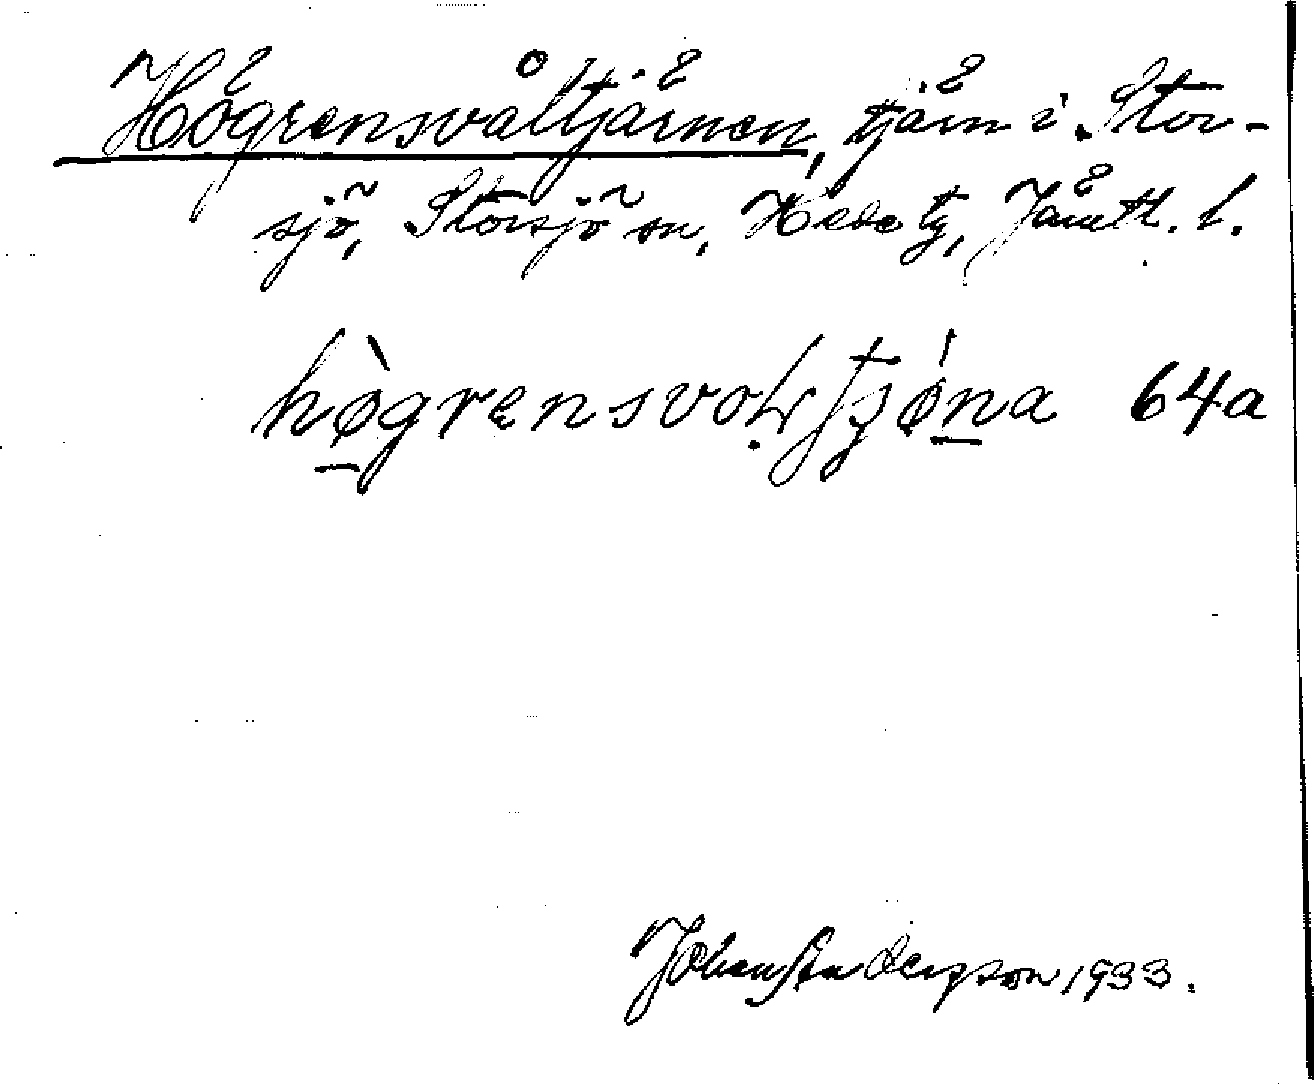 Högrensvåltjärnen, tjärn i Stor-
sjö, Storsjö sn, Hede tg, Jämtl. l.
högrensvoltjøna 64a
Johan Anderzson 1933.